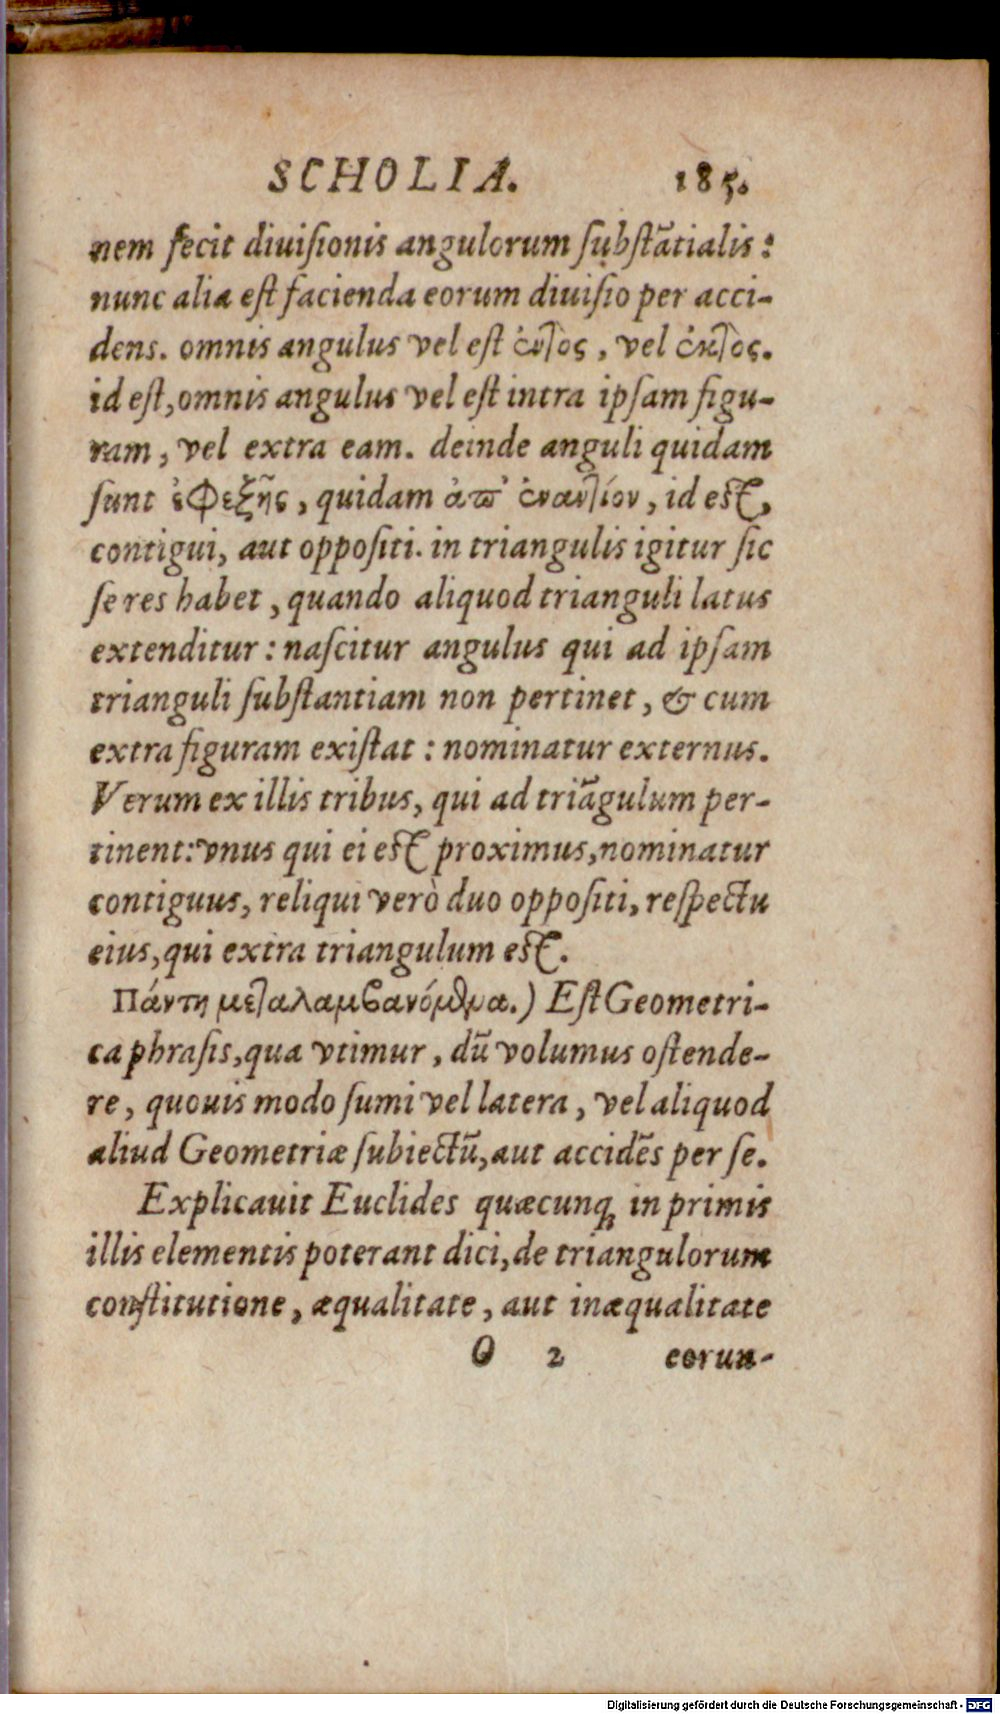 SCHOLIA. 185.
nem fecit diuiſionis angulorum ſubſtãtialis:
nunc alia eſt facienda eorum diuiſio per acci-
dens. omnis angulus vel eſt ἐντὸς, vel ἐκτὸς.
id eſt, omnis angulus vel eſt intra ipſam figu-
ram, vel extra eam. deinde anguli quidam
ſunt ἐφεξῆς, quidam ἀπ' ἐναντίον, id eſt,
contigui, aut oppoſiti. in triangulis igitur ſic
ſe res habet, quando aliquod trianguli latus
extenditur: naſcitur angulus qui ad ipſam
trianguli ſubſtantiam non pertinet, & cum
extra figuram exiſtat: nominatur externus.
Verum ex illis tribus, qui ad triãgulum per-
tinent: vnus qui ei eſt proximus, nominatur
contiguus, reliqui verò duo oppoſiti, reſpectu
eius, qui extra triangulum eſt.
Πάντη μεταλαμβανόμεναι.) Eſt Geometri-
ca phraſis, qua vtimur, dũ volumus oſtende-
re, quouis modo ſumi vel latera, vel aliquod
aliud Geometriæ ſubiectũ, aut accidẽs per ſe.
Explicauit Euclides quæcunq; in primis
illis elementis poterant dici, de triangulorum
conſtitutione, æqualitate, aut inæqualitate
O 2 eorun-
Digitalisierung gefördert durch die Deutsche Forschungsgemeinschaft - DFG